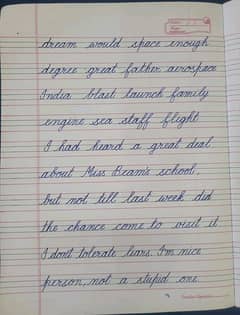 dream would space enough
degree great father aerospace
India blast launch family
engine sea staff flight
I had heard a great deal
about Miss Beam's school,
but not till last week did
the chance come to visit it
I don't tolerate liars. I'm nice
person, not a stupid one